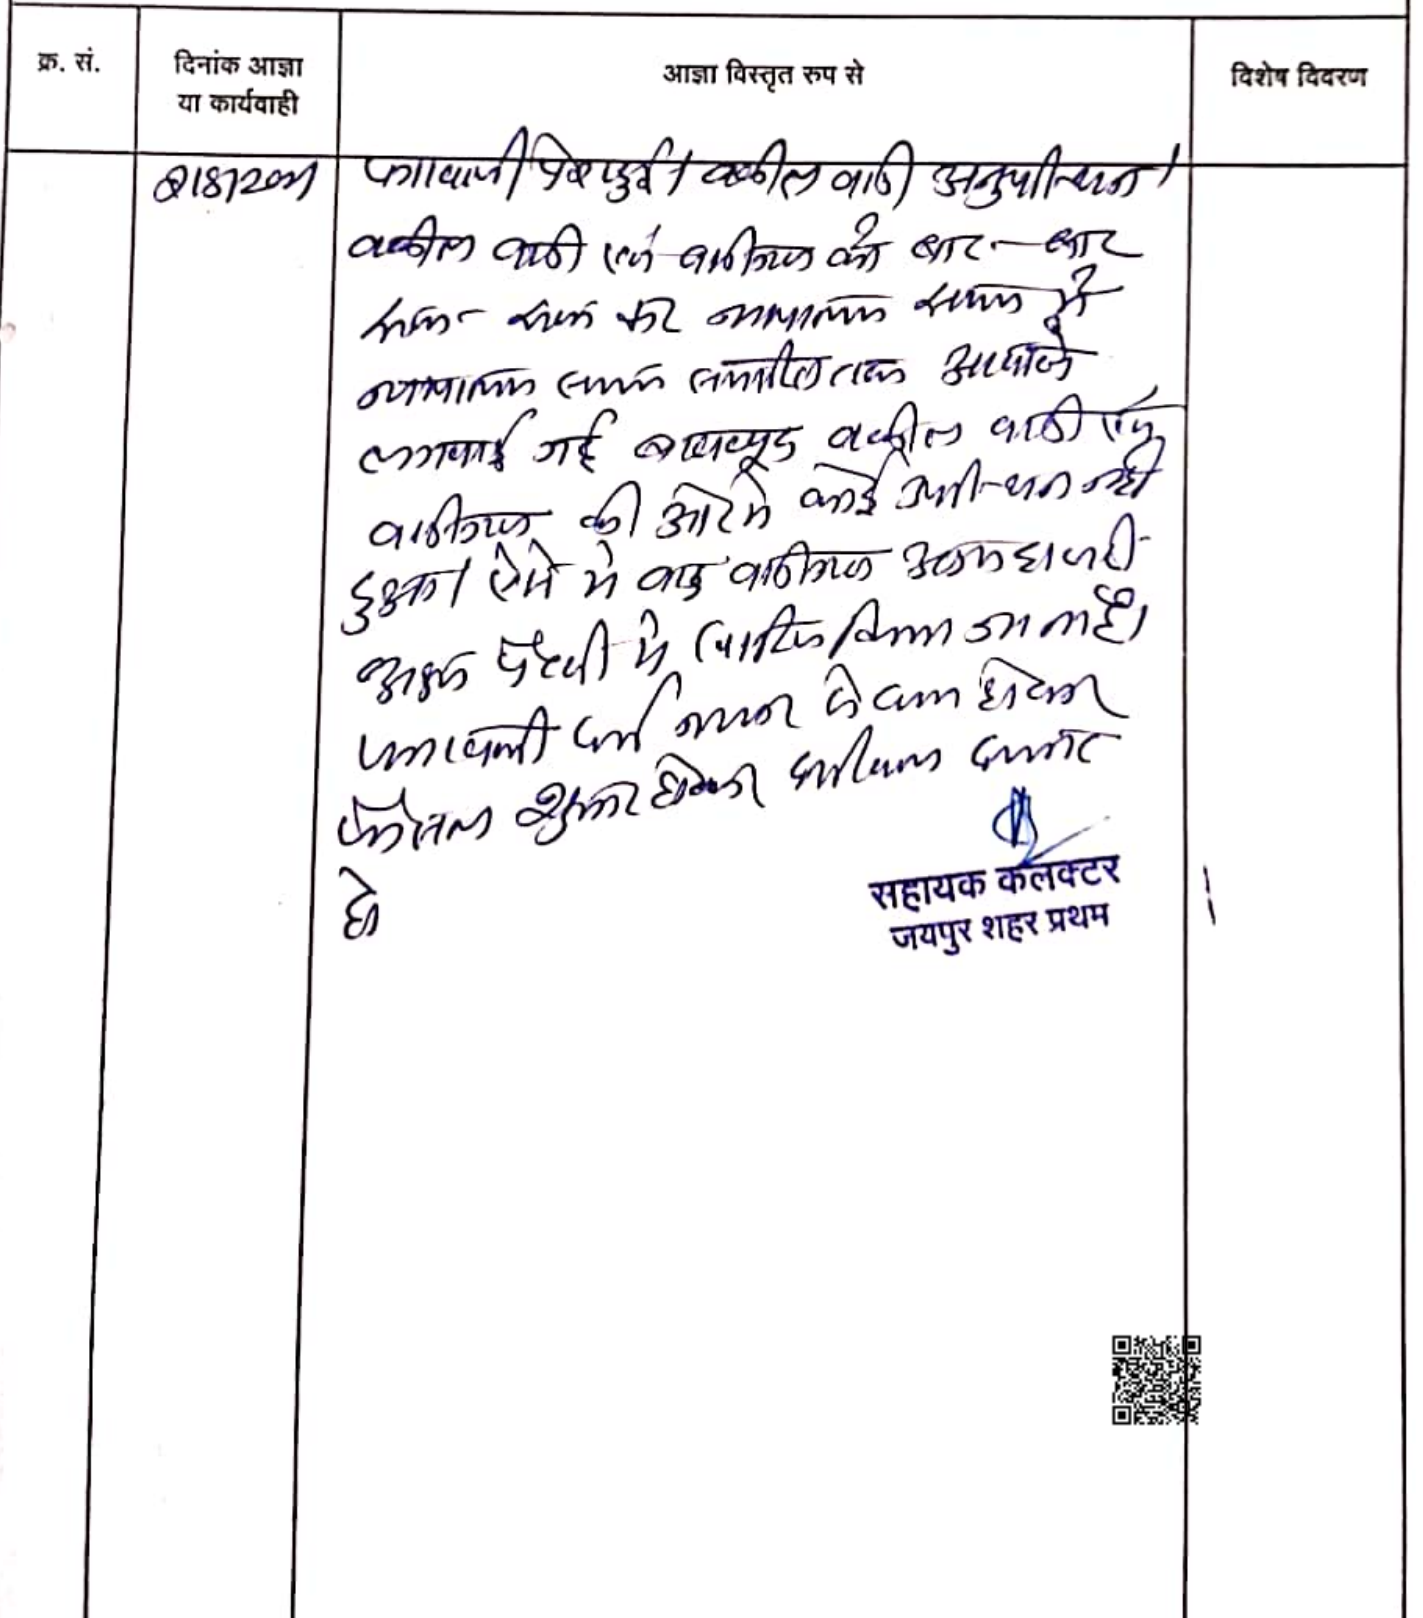 क्र. सं.
दिनांक आज्ञा
या कार्यवाही
आज्ञा विस्तृत रुप से
विशेष विवरण
पत्रावली पेश हुई। वकील वादी अनुपस्थित।
वकील वादी एवं वादीगण को बार-बार
कर न्यायालय समय में
न्यायालय समय समाप्ति तक आवाजें
लगवाई गई बावजूद वकील वादी एवं
वादीगण की ओर से कोई उपस्थित नहीं
हुआ। ऐसे में वाद वादीगण अदम हाजरी
अदम पैरवी में खारिज किया जाता है।
पत्रावली दर्ज नम्बर से कम होकर
फैसल शुमार होकर दाखिल दफ्तर
हो
सहायक कलक्टर
जयपुर शहर प्रथम